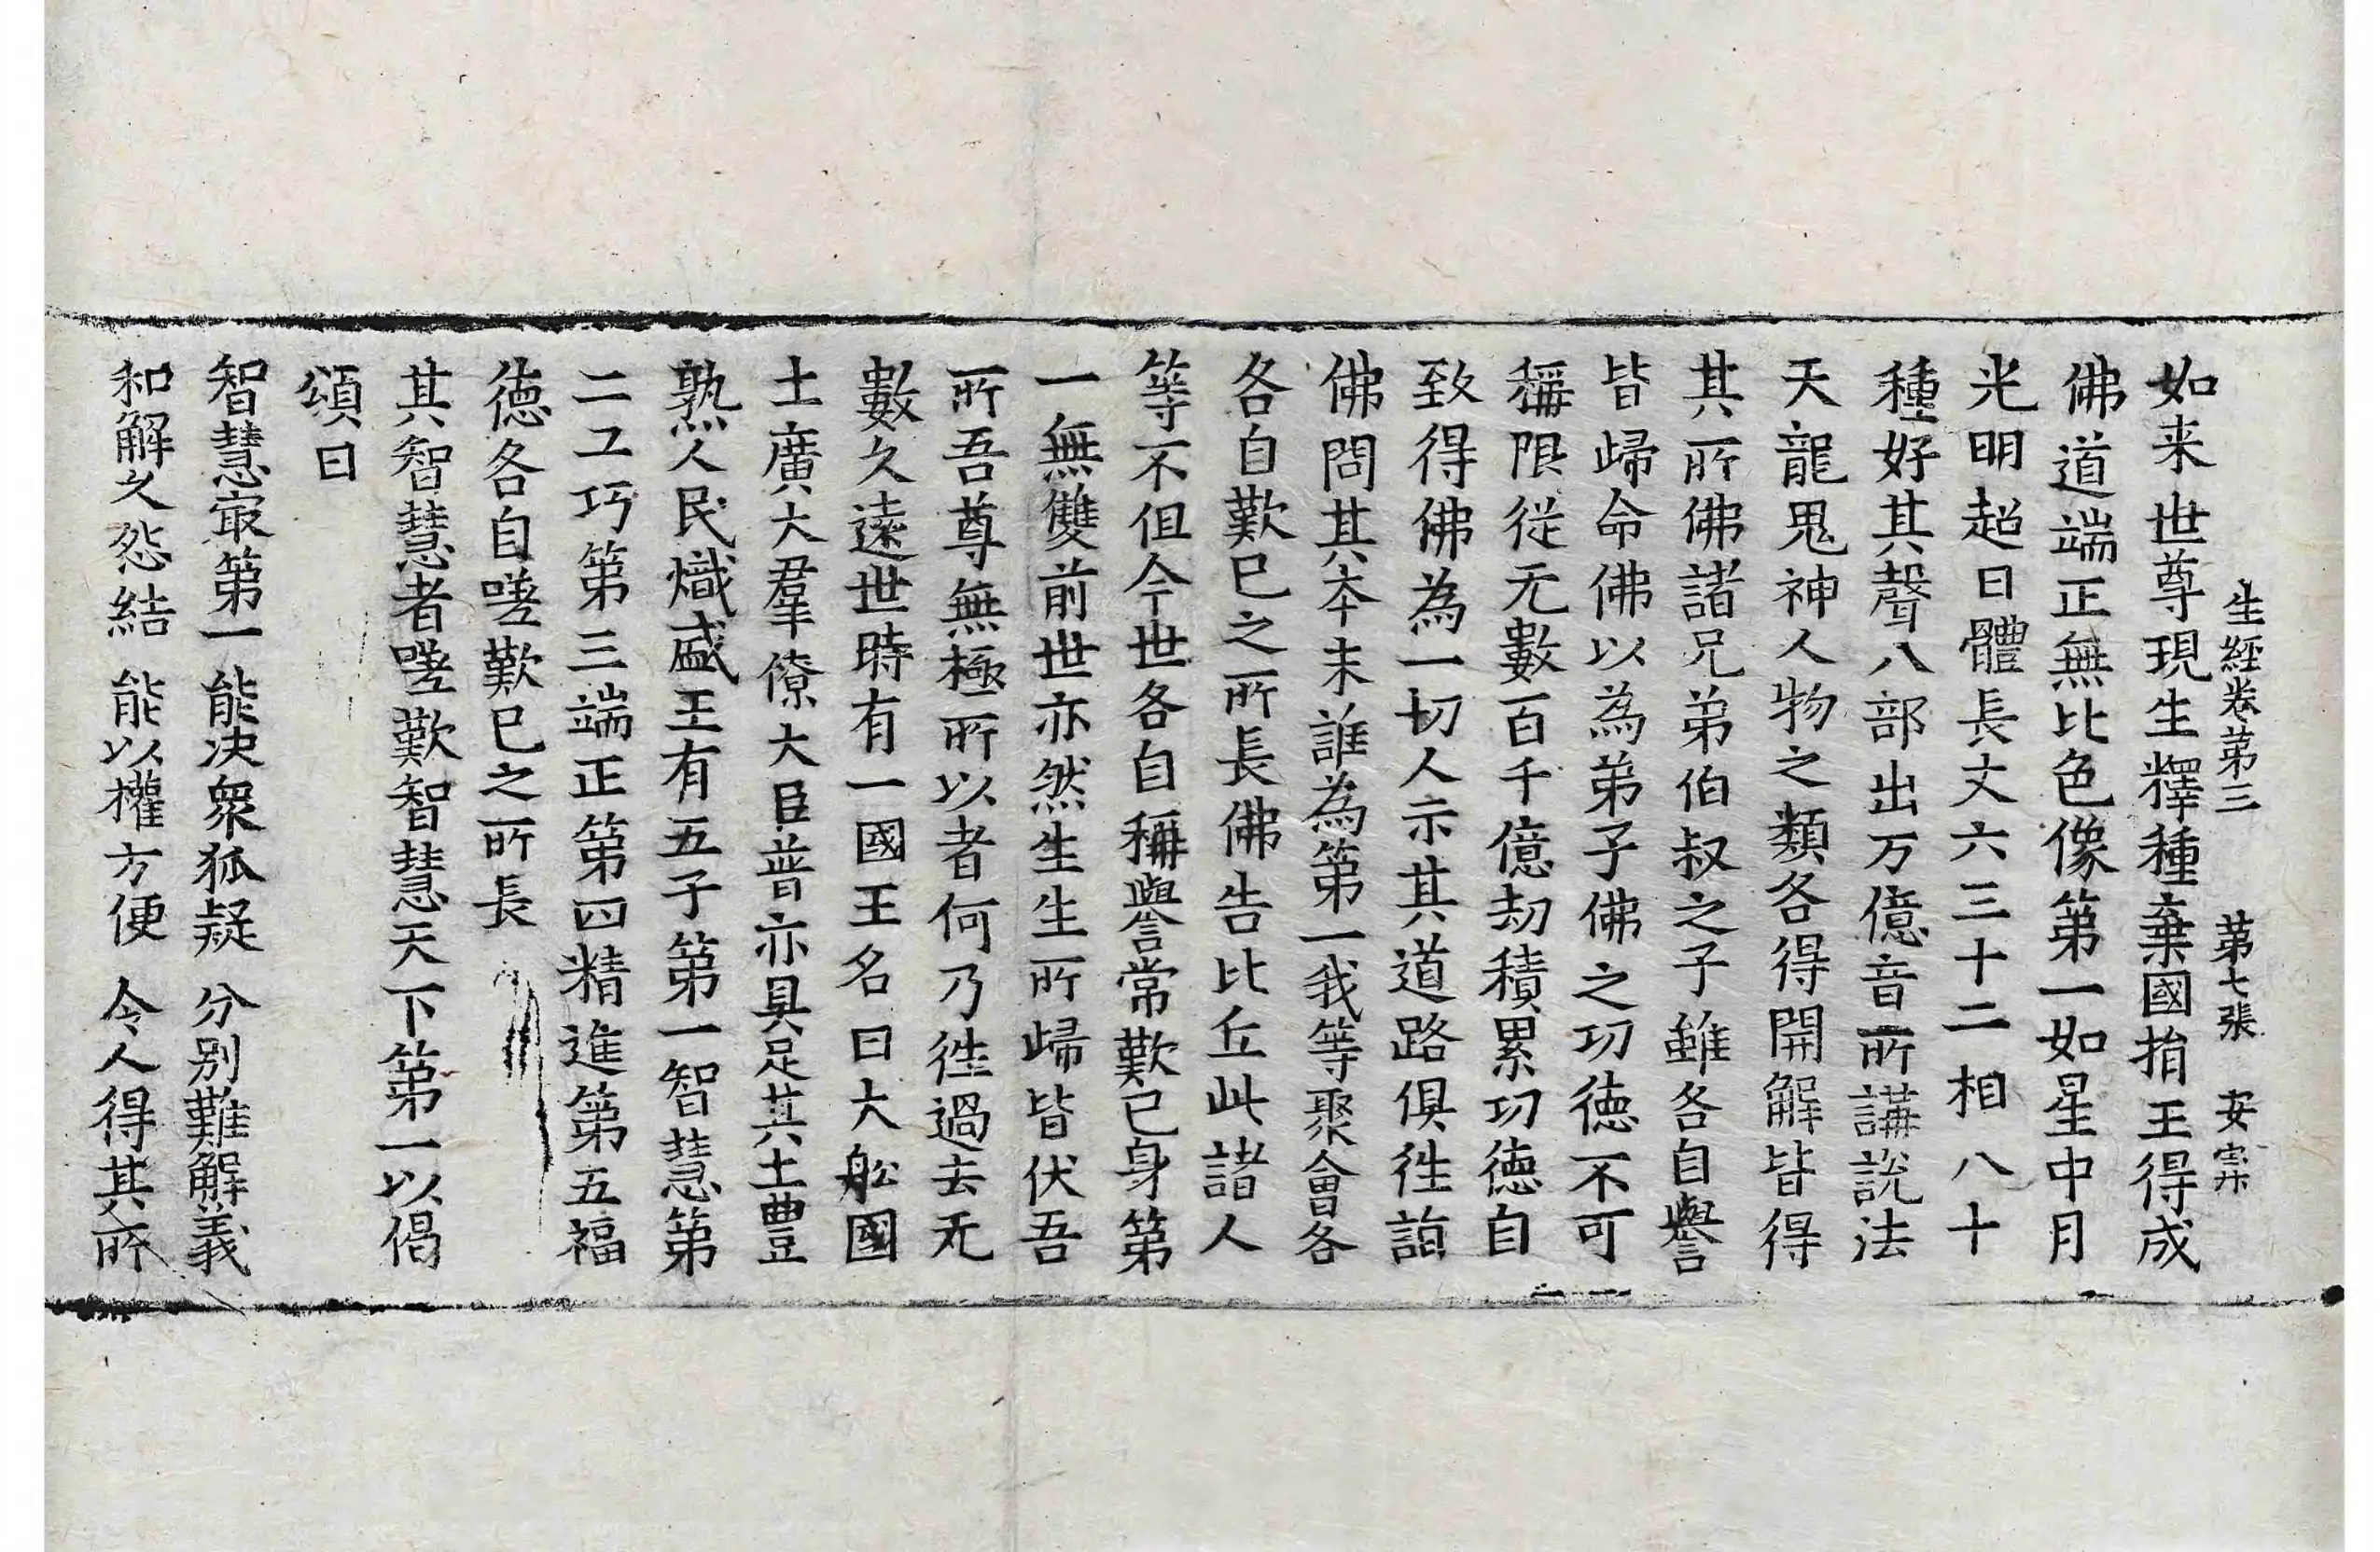 生經卷第三 第七張 安宗
如来世尊現生釋種棄國捐王得成
佛道端正無比色像第一如星中月
光明超日體長丈六三十二相八十
種好其聲八部出万億音所講說法
天龍鬼神人物之類各得開解皆得
其所佛諸兄弟伯叔之子雖各自譽
皆歸命佛以為弟子佛之功徳不可
稱限從无數百千億劫積累功徳自
致得佛為一切人示其道路俱徃詣
佛問其本末誰為第一我等聚會各
各自歎已之所長佛告比丘此諸人
等不但今世各自稱譽常歎已身第
一無雙前世亦然生生所歸皆伏吾
所吾尊無極所以者何乃徃過去无
數久遠世時有一國王名曰大舩國
土廣大羣僚大臣普亦具足其土豊
熟人民熾盛王有五子第一智慧第
二工巧第三端正第四精進第五福
徳各自嗟歎已之所長
其智慧者嗟歎智慧天下第一以偈
頌曰
智慧冣第一能决衆狐疑 分別難解義
和解久怨結 能以權方便 令人得其所